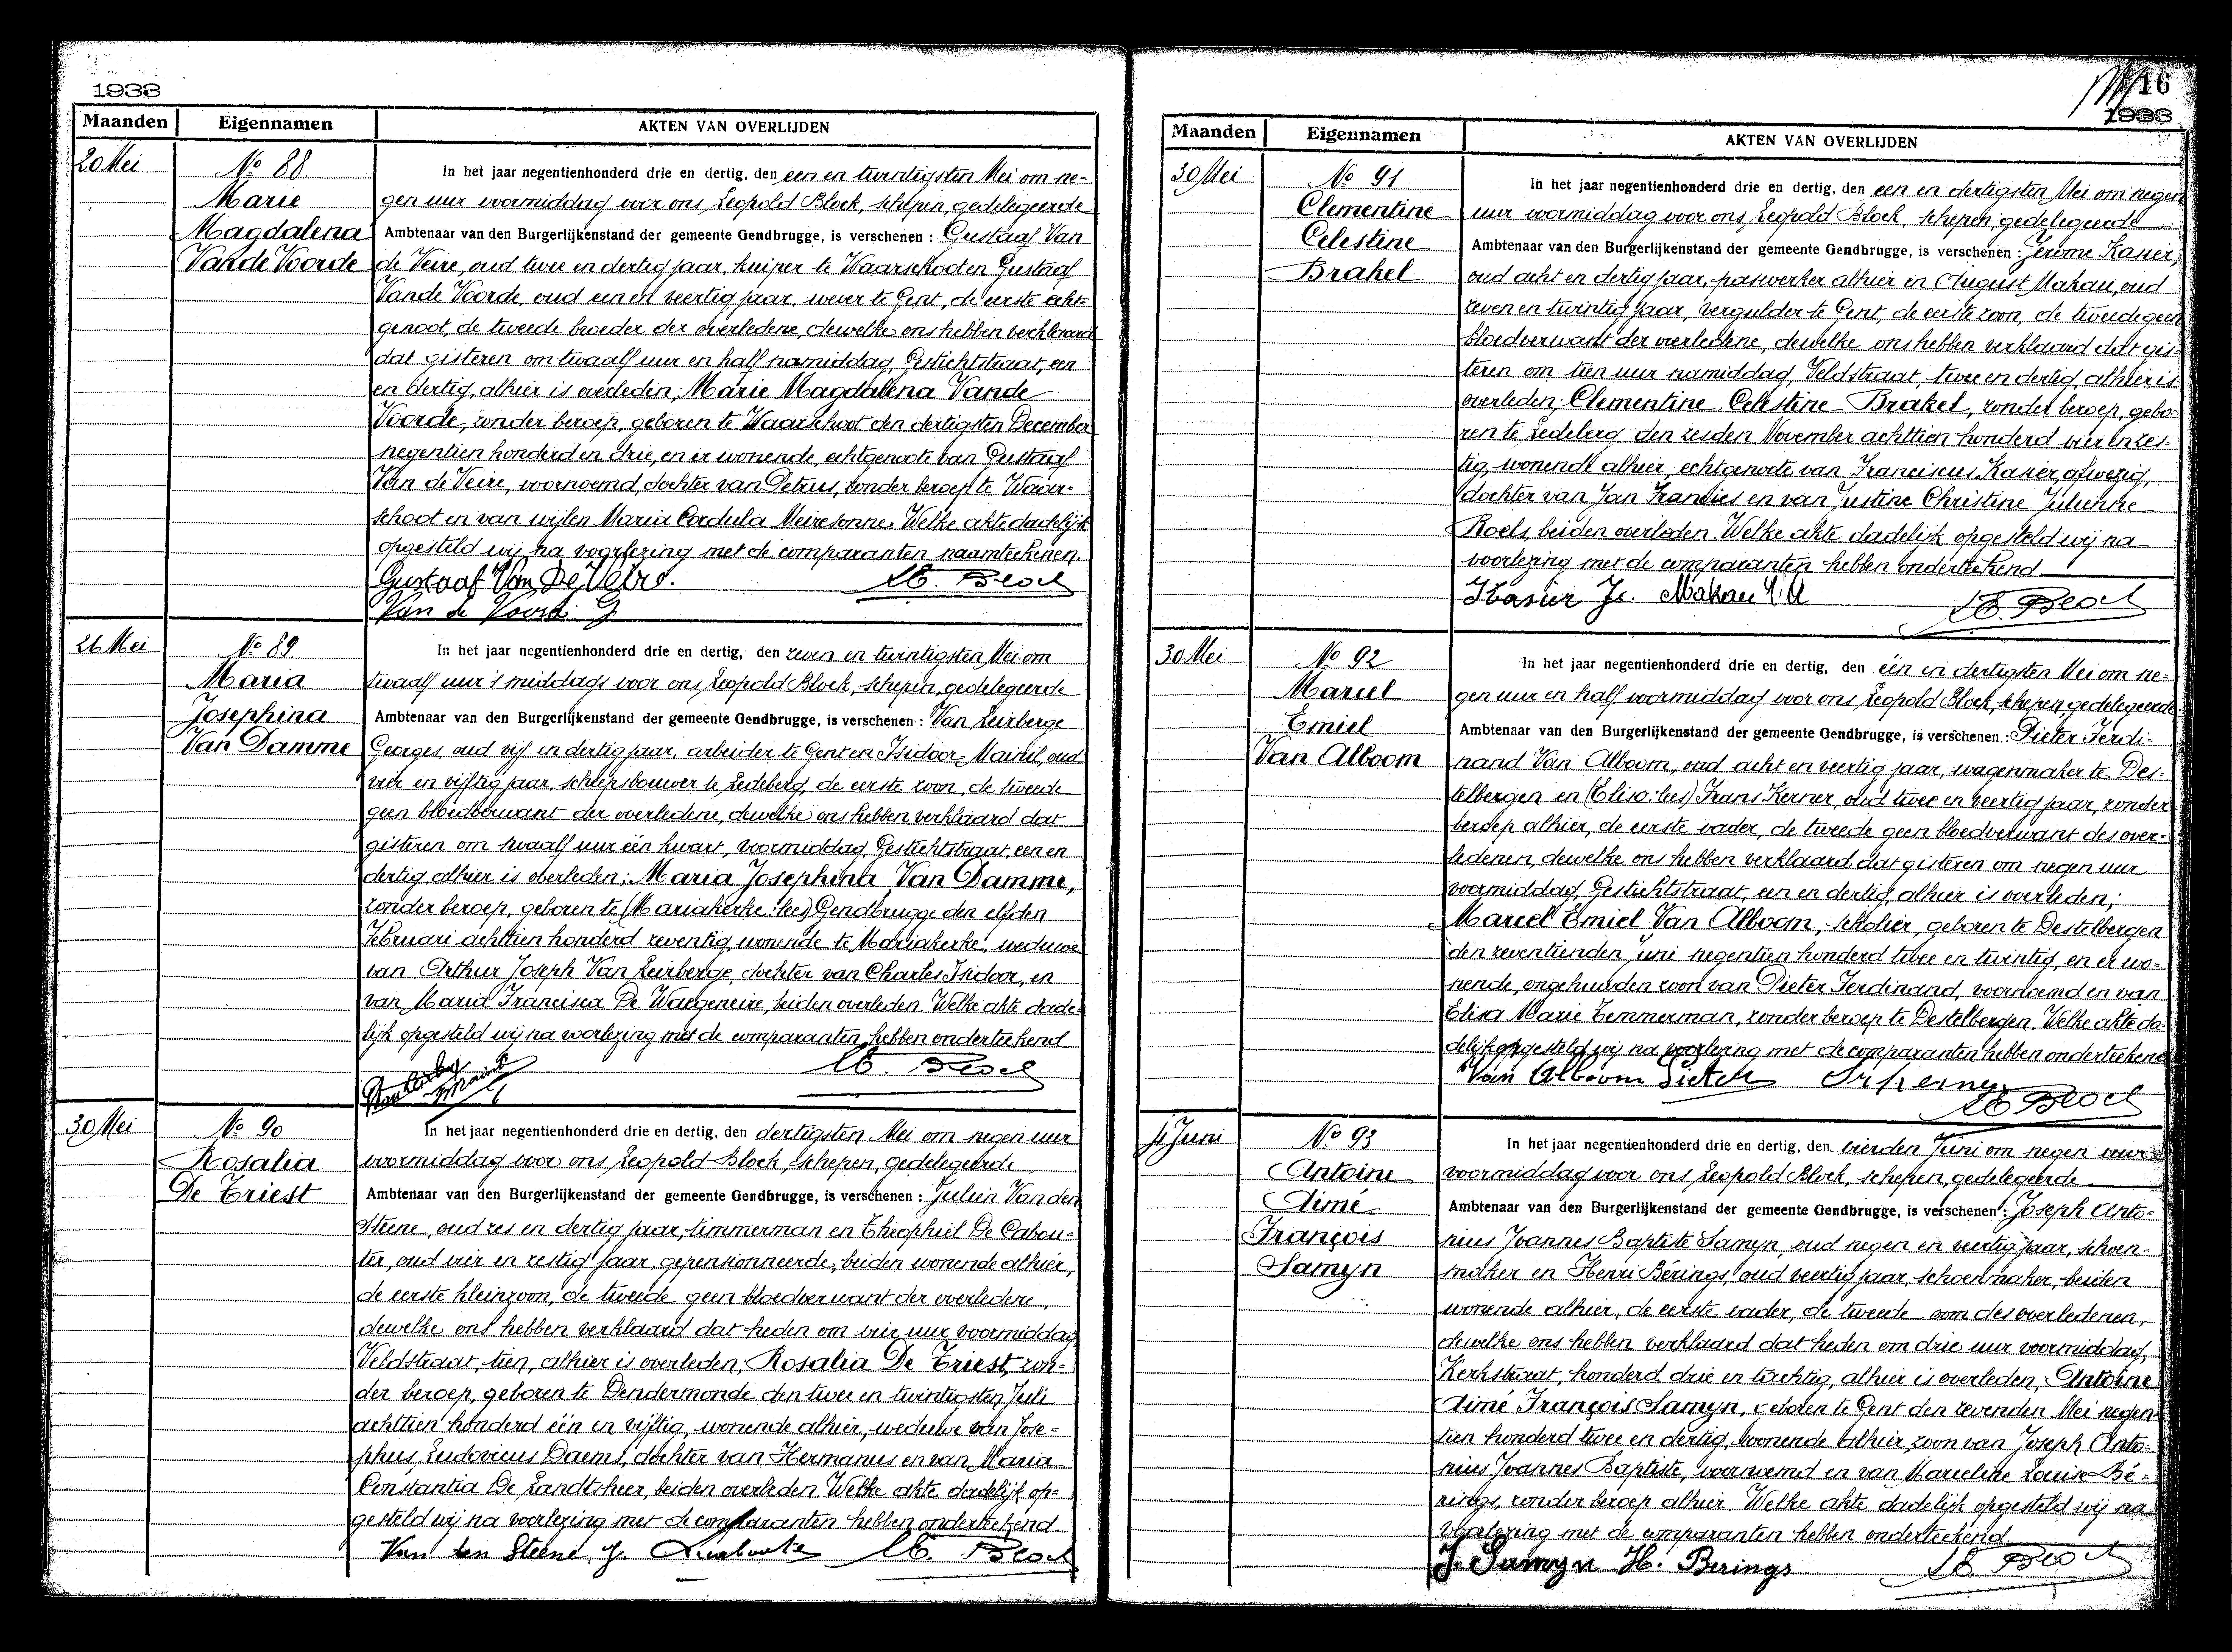 1933
Maanden Eigennamen AKTEN VAN OVERLIJDEN
20 Mei
No 88
Marie
Magdalena
Vande Voorde
In het jaar negentienhonderd drie en dertig, den een en twintigsten Mei om ne-
gen uur voormiddag voor ons Leopold Block, schepen, gedelegeerde
Ambtenaar van den Burgerlijkenstand der gemeente Gendbrugge, is verschenen : Gustaaf Van
de Veire, oud twee en dertig jaar, kuiper te Waarschoot en Gustaaf
Vande Voorde, oud een en veertig jaar, wever te Gent, de eerste echt-
genoot, de tweede broeder der overledene, dewelke ons hebben verklaard
dat gisteren om twaalf uur en half namiddag, Gestichtstraat, een
en dertig, alhier is overleden; Marie Magdalena Vande
Voorde, zonder beroep, geboren te Waarschoot den dertigsten December
negentien honderd en drie, en er wonende, echtgenoote van Gustaaf
Van de Veire, voornoemd, dochter van Petrus, zonder beroep te Waar-
schoot en van wijlen Maria Cordula Meiresonne. Welke akte dadelijk
opgesteld wij na voorlezing met de comparanten naamteekenen.
Gustaaf Van De Veire. Block
Van de Voorde G
26 Mei
No 89
Maria
Josephina
Van Damme
In het jaar negentienhonderd drie en dertig, den zeven en twintigsten Mei om
twaalf uur 's middags voor ons Leopold Block, schepen, gedelegeerde
Ambtenaar van den Burgerlijkenstand der gemeente Gendbrugge, is verschenen : Van Leirberge
Georges, oud vijf en dertig jaar, arbeider te Gent en Isidoor Mainil, oud
vier en vijftig jaar, scheepsbouwer te Ledeberg, de eerste zoon, de tweede
geen bloedverwant der overledene, dewelke ons hebben verklaard dat
gisteren om twaalf uur één kwart, voormiddag, Gestichtstraat, een en
dertig, alhier is overleden; Maria Josephina Van Damme,
zonder beroep, geboren te (Mariakerke : lees) Gendbrugge den elfden
Februari achttien honderd zeventig, wonende te Mariakerke, weduwe
van Arthur Joseph Van Leirberge, dochter van Charles Isidoor, en
van Maria Francisca De Waegeneire, beiden overleden. Welke akte dade-
lijk opgesteld wij na voorlezing met de comparanten hebben onderteekend
Block
30 Mei
No 90
Rosalia
De Triest
In het jaar negentienhonderd drie en dertig, den dertigsten Mei om negen uur
voormiddag voor ons Leopold Block, schepen, gedelegeerde
Ambtenaar van den Burgerlijkenstand der gemeente Gendbrugge, is verschenen : Julien Van den
Steene, oud zes en dertig jaar, timmerman en Theophiel De Cabou-
ter, oud vier en zestig jaar, gepensionneerde, beiden wonende alhier,
de eerste kleinzoon, de tweede geen bloedverwant der overledene,
dewelke ons hebben verklaard dat heden om vier uur voormiddag
Veldstraat, tien, alhier is overleden; Rosalia De Triest, zon-
der beroep, geboren te Dendermonde den twee en twintigsten Juli
achttien honderd één en vijftig, wonende alhier, weduwe van Jose-
phus Ludovicus Daems, dochter van Hermanus en van Maria
Constantia De Landtsheer, beiden overleden. Welke akte dadelijk op-
gesteld wij na voorlezing met de comparanten hebben onderteekend.
Van den Steene J. Block
16
1933
Maanden Eigennamen AKTEN VAN OVERLIJDEN
30 Mei
No 91
Clementine
Celestine
Brakel
In het jaar negentienhonderd drie en dertig, den een en dertigsten Mei om negen
uur voormiddag voor ons Leopold Block, schepen, gedelegeerde
Ambtenaar van den Burgerlijkenstand der gemeente Gendbrugge, is verschenen : Jerome Kasier,
oud acht en dertig jaar, paswerker alhier en August Makau, oud
zeven en twintig jaar, vergulder te Gent, de eerste zoon, de tweede geen
bloedverwant der overledene, dewelke ons hebben verklaard dat gis-
teren om tien uur namiddag, Veldstraat, twee en dertig, alhier is
overleden; Clementine Celestine Brakel, zonder beroep, gebo-
ren te Ledeberg den zesden November achttien honderd vier en zes-
tig, wonende alhier, echtgenoote van Franciscus Kasier, afwezig,
dochter van Jan Francies en van Justine Christine Julienne
Roels, beiden overleden. Welke akte dadelijk opgesteld wij na
voorlezing met de comparanten hebben onderteekend
Kasier Je. Makau Block
30 Mei
No 92
Marcel
Emiel
Van Alboom
In het jaar negentienhonderd drie en dertig, den één en dertigsten Mei om ne-
gen uur en half voormiddag voor ons Leopold Block, schepen, gedelegeerde
Ambtenaar van den Burgerlijkenstand der gemeente Gendbrugge, is verschenen : Pieter Ferdi-
nand Van Alboom, oud acht en veertig jaar, wagenmaker te Des-
telbergen en (Elisa : lees) Frans Kerner, oud twee en veertig jaar, zonder
beroep alhier, de eerste vader, de tweede geen bloedverwant des over-
ledenen, dewelke ons hebben verklaard dat gisteren om negen uur
voormiddag, Gestichtstraat, een en dertig, alhier is overleden;
Marcel Emiel Van Alboom, scholier, geboren te Destelbergen
den zeventienden Juni negentien honderd twee en twintig, en er wo-
nende, ongehuwden zoon van Pieter Ferdinand, voornoemd en van
Elisa Marie Temmerman, zonder beroep te Destelbergen. Welke akte da-
delijk opgesteld wij na voorlezing met de comparanten hebben onderteekend
Van Alboom Pieter Fr Kerner
Block
4 Juni
No 93
Antoine
Aimé
François
Samyn
In het jaar negentienhonderd drie en dertig, den vierden Juni om negen uur
voormiddag voor ons Leopold Block, schepen, gedelegeerde
Ambtenaar van den Burgerlijkenstand der gemeente Gendbrugge, is verschenen : Joseph Anto-
nius Joannes Baptiste Samyn, oud negen en veertig jaar, schoen-
maker en Henri Bérings, oud veertig jaar, schoenmaker, beiden
wonende alhier, de eerste vader, de tweede oom des overledenen,
dewelke ons hebben verklaard dat heden om drie uur voormiddag,
Kerkstraat, honderd drie en tachtig, alhier is overleden; Antoine
Aimé François Samyn, geboren te Gent den zevenden Mei negen-
tien honderd twee en dertig, wonende alhier, zoon van Joseph Anto-
nius Joannes Baptiste, voornoemd en van Marceline Louise Bé-
rings, zonder beroep alhier. Welke akte dadelijk opgesteld wij na
voorlezing met de comparanten hebben onderteekend
J. Samyn H. Berings Block